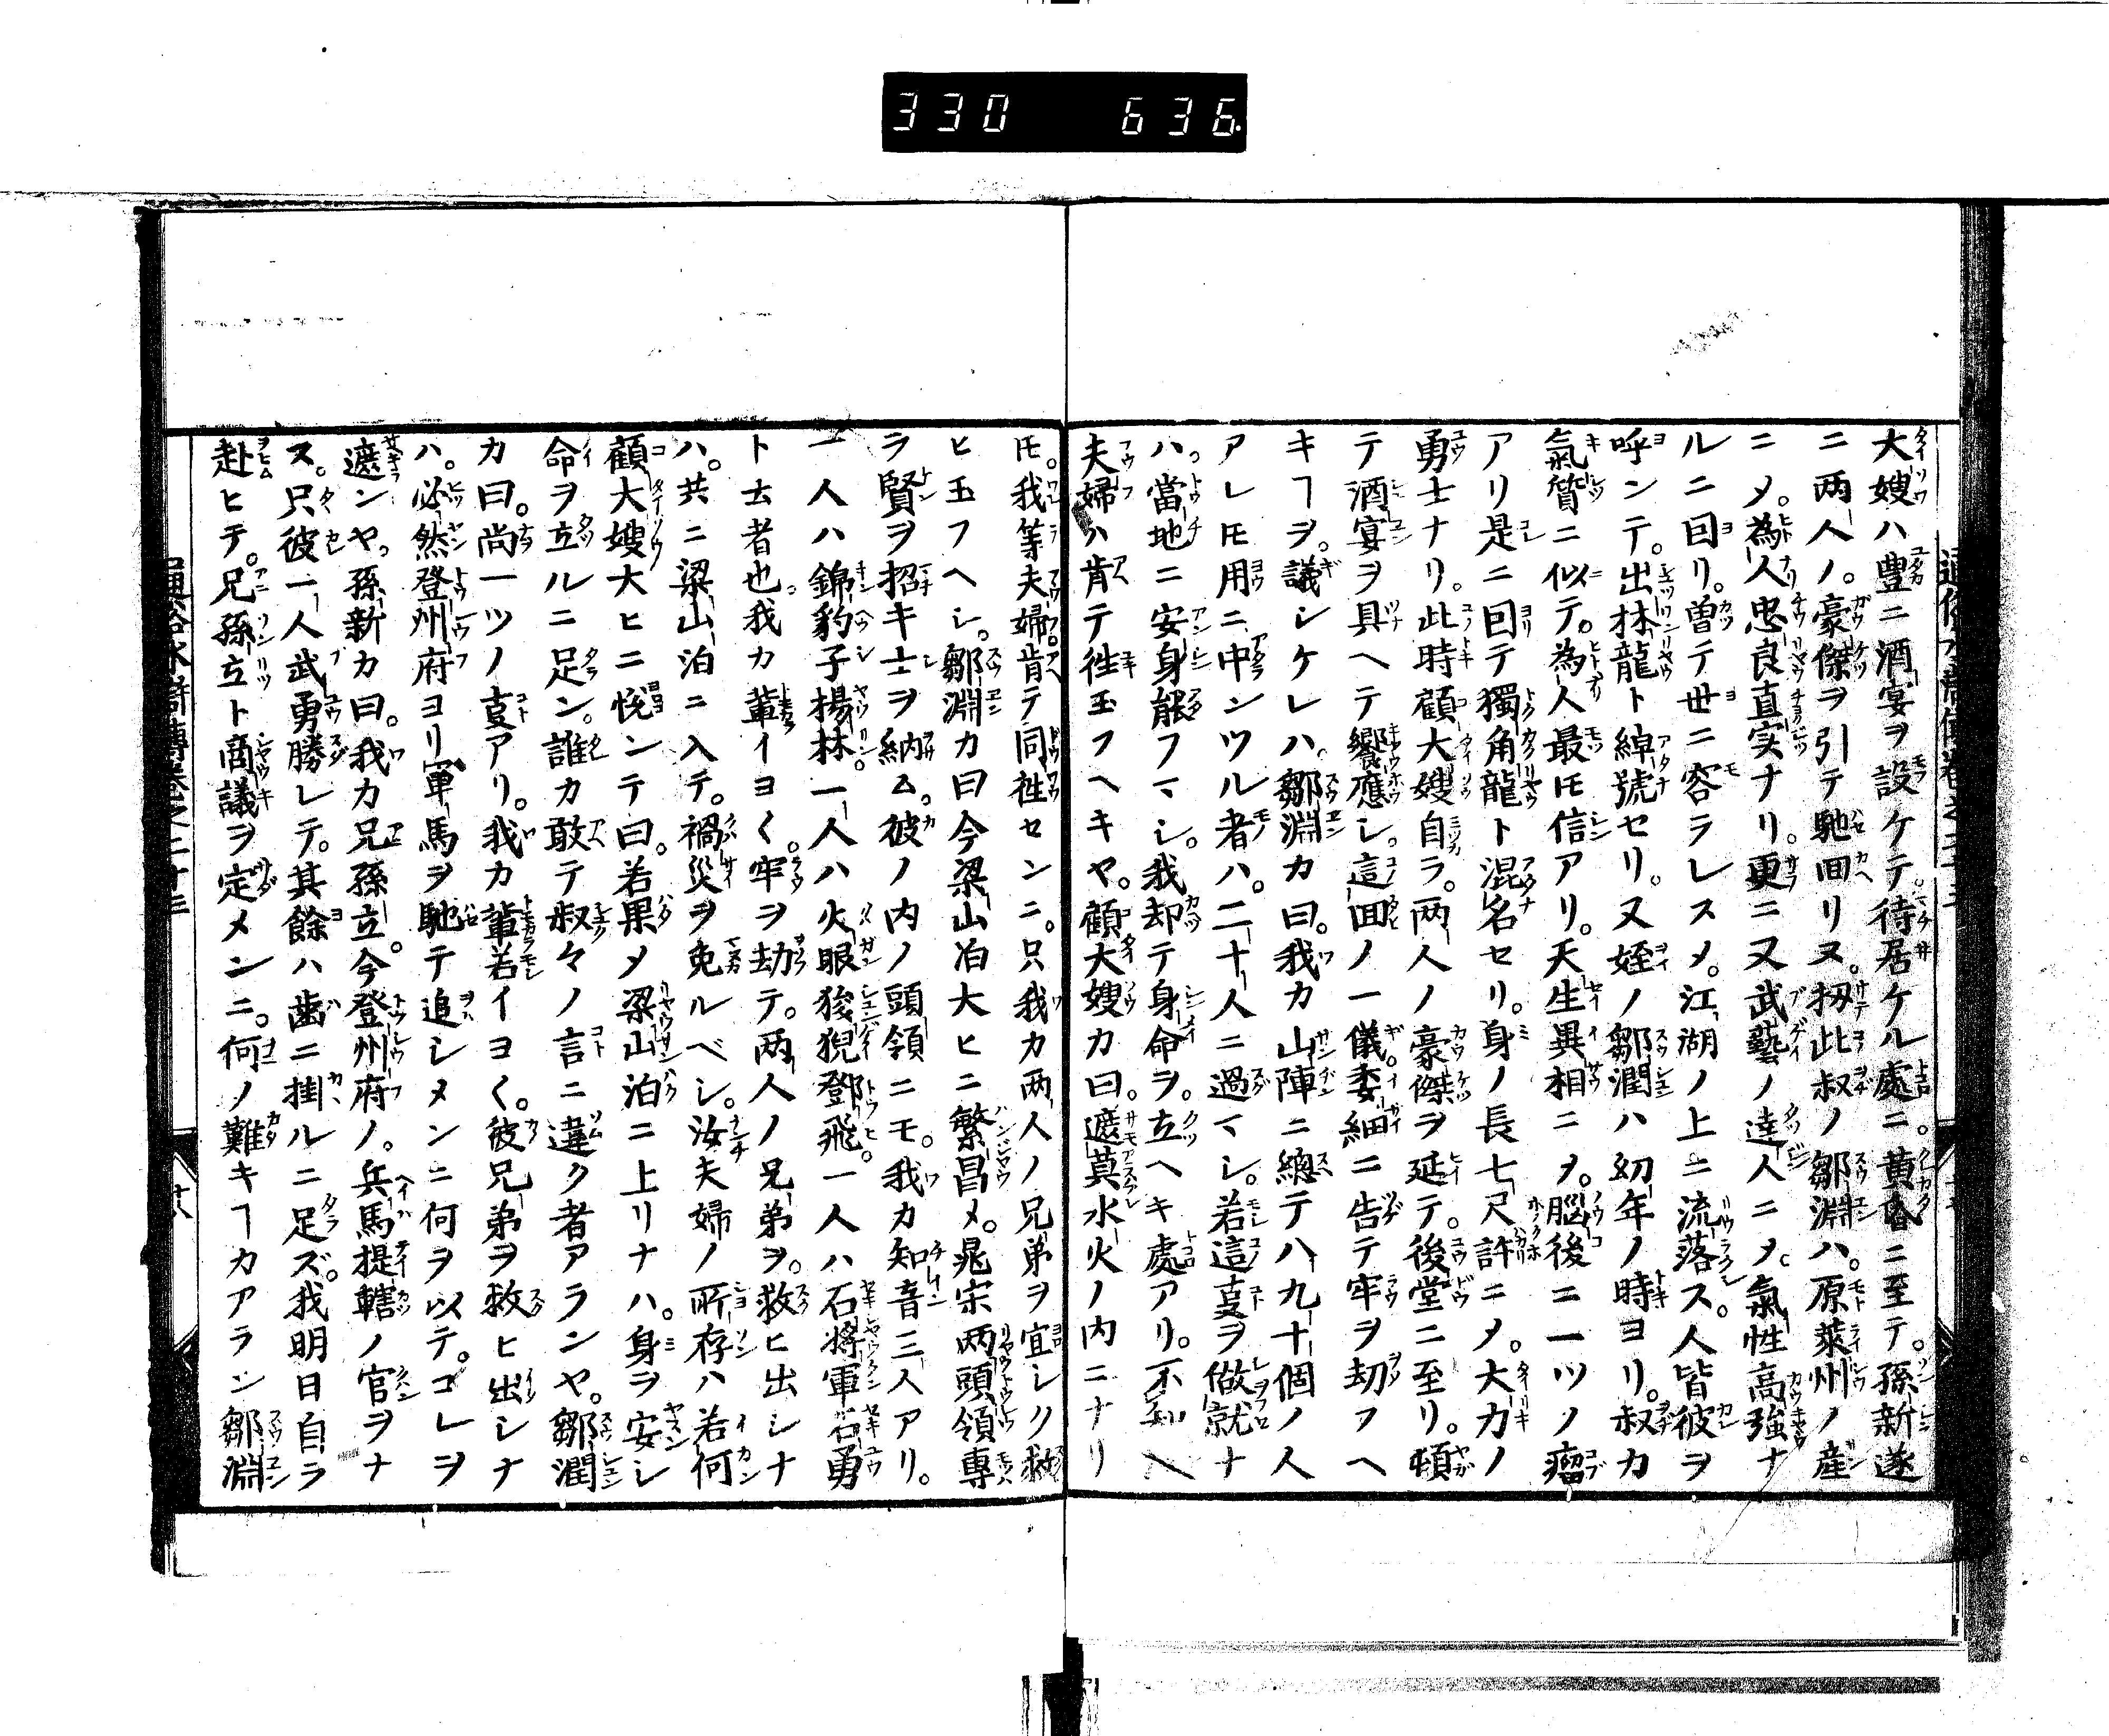 330 636.
大嫂ハ豊ニ酒宴ヲ設ケテ。待居ケル處ニ。黄昏ニ至テ。孫新遂
ニ兩人ノ。豪傑ヲ引テ馳回リヌ。扨此叔ノ鄒淵ハ。原萊州ノ産
ニメ。為人忠良直実ナリ。更ニ又武藝ノ達人ニメ。氣性高強ナ
ルニ因リ。曽テ世ニ容ラレスメ。江湖ノ上ニ流落ス。人皆彼ヲ
呼ンテ。出林龍ト綽號セリ。又姪ノ鄒潤ハ幼年ノ時ヨリ。叔カ
氣質ニ似テ。為人最モ信アリ。天生異相ニメ。腦後ニ一ツノ瘤
アリ是ニ因テ獨角龍ト混名セリ。身ノ長七尺許ニメ。大力ノ
勇士ナリ。此時顧大嫂自ラ。兩人ノ豪傑ヲ延テ。後堂ニ至リ。頓
テ酒宴ヲ具ヘテ饗應シ。這囬ノ一儀。委細ニ告テ牢ヲ刧フヘ
キヿヲ。議シケレハ。鄒淵カ曰。我カ山陣ニ總テ八九十個ノ人
アレ𪜈用ニ中ンツル者ハ。二十人ニ過マシ。若這㕝ヲ做就ナ
ハ。當地ニ安身能フマシ。我却テ身命ヲ。立ヘキ處アリ。不知
夫婦ハ肯テ徃玉フヘキヤ。顧大嫂カ曰。遮莫水火ノ内ニナリ
𪜈。我等夫婦。肯テ同徃センニ。只我カ兩人ノ兄弟ヲ宜シク救
ヒ玉フヘシ。鄒淵カ曰今梁山泊大ヒニ繁昌メ。晁宋兩頭領專
ラ賢ヲ招キ士ヲ納ム。彼ノ内ノ頭領ニモ。我カ知音三人アリ。
一人ハ錦豹子楊林。一人ハ火眼狻猊鄧飛。一人ハ石將軍石勇
ト云者也。我カ輩イヨく。牢ヲ刧テ。兩人ノ兄弟ヲ。救ヒ出シナ
ハ。共ニ梁山泊ニ入テ。禍災ヲ免ルベシ。汝夫婦ノ所存ハ若何
顧大嫂大ヒニ悦ンテ曰。若果メ梁山泊ニ上リナハ。身ヲ安シ
命ヲ立ルニ足ン。誰カ敢テ叔々ノ言ニ違ク者アランヤ。鄒潤
カ曰。尚一ツノ㕝アリ。我カ輩若イヨく。彼兄弟ヲ救ヒ出シナ
ハ。必然登州府ヨリ軍馬ヲ馳テ追シメンニ何ヲ以テ。コレヲ
遮ンヤ。孫新カ曰。我カ兄孫立。今登州府ノ。兵馬提轄ノ官ヲナ
ス。只彼一人武勇勝レテ。其餘ハ歯ニ掛ルニ足ラズ。我明日自ラ
赴ヒテ。兄孫立ト商議ヲ定メンニ。何ノ難キヿカアラン鄒淵
十八